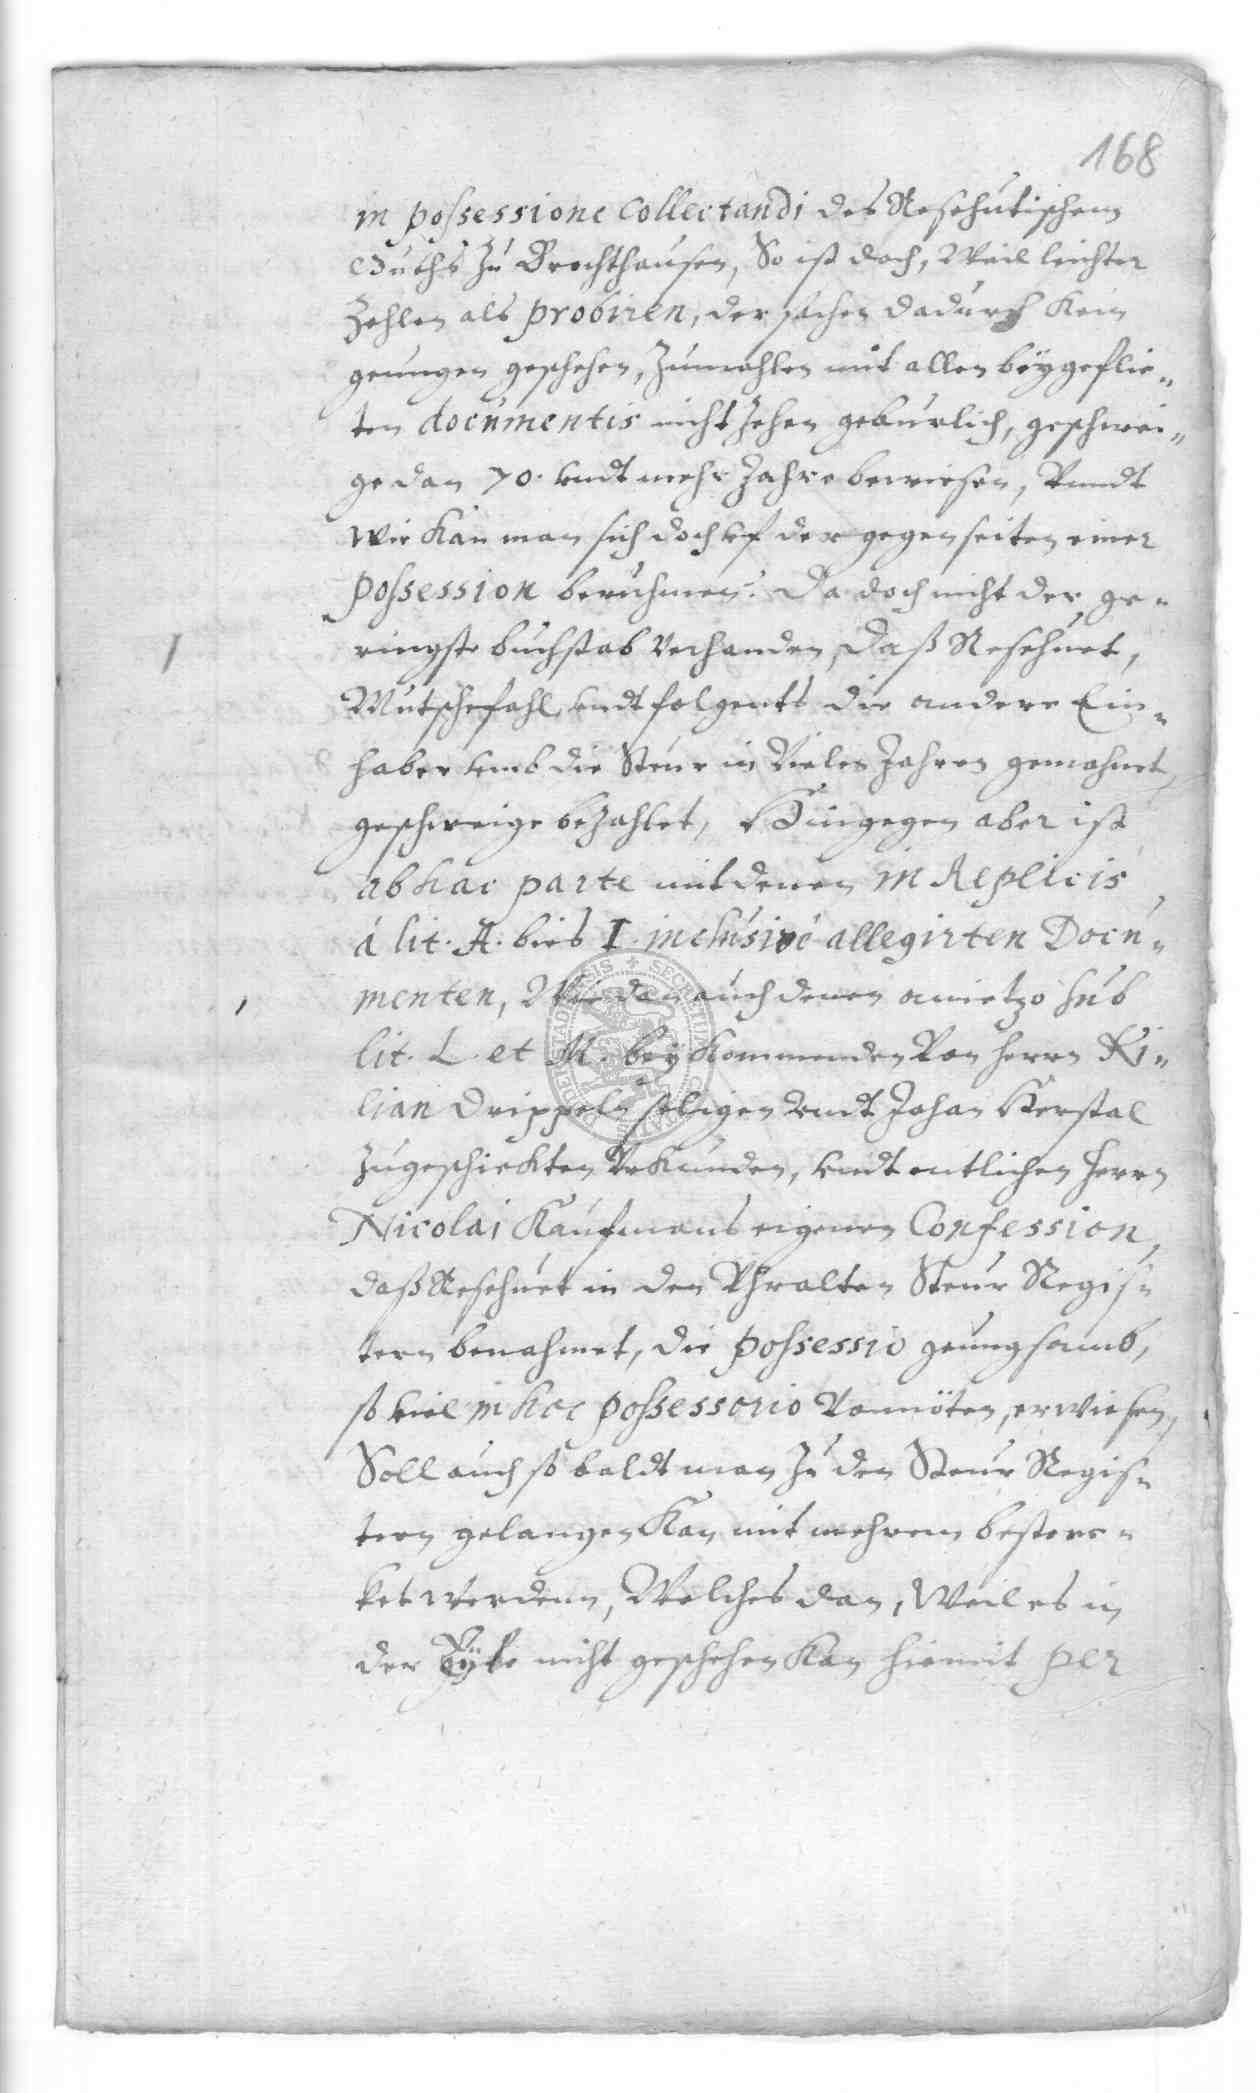 168
in possessione collectandi des Reschutischen
Guths zu Brochthausen, So ist doch, Weil leichter
Zehlen als probiren, der sachen dadurch kein
genungen geschehen, Zumahlen mit allen beygefüe„
ten documentis nicht zehen geburlich, geschwei„
ge dan 70. undt mehr Jahre bewiesen, Unndt
wie kan man sich doch uf der gegenseiten einer
possession beruhmen? Da doch nicht der ge„
ringste buchstab verhanden, daß Reschuet,
Mutschefahl, undt folgents die andere Ein„
haber umb die Steur in vielen Jahren gemahnet,
geschweige bezahlet, Hingegen aber ist
ab hac parte mit denen in Replicis
á lit. A. bies I. inclusivé allegirten Docu„
menten, Wie dan auch denen anietzo sub
lit. L et M. bey kommenden Von herrn Ki„
lian Drippeln seligen undt Johan Herstal
zugeschickten Urkunden, undt entlichen Herrn
Nicolai Kaufmans eigenen Confession,
daß Reschuet in den Uhralten Steur Regis„
tern benahmet, die possessio genungsamb,
so viel in hoc possessorio Vonnöten, erwiesen,
Soll auch so baldt man zu den Steur Regis„
tern gelangen kan, mit mehrem bester„
ket werden, Welches dan, Weil es in
der Eyle nicht geschehen kan hiemit per